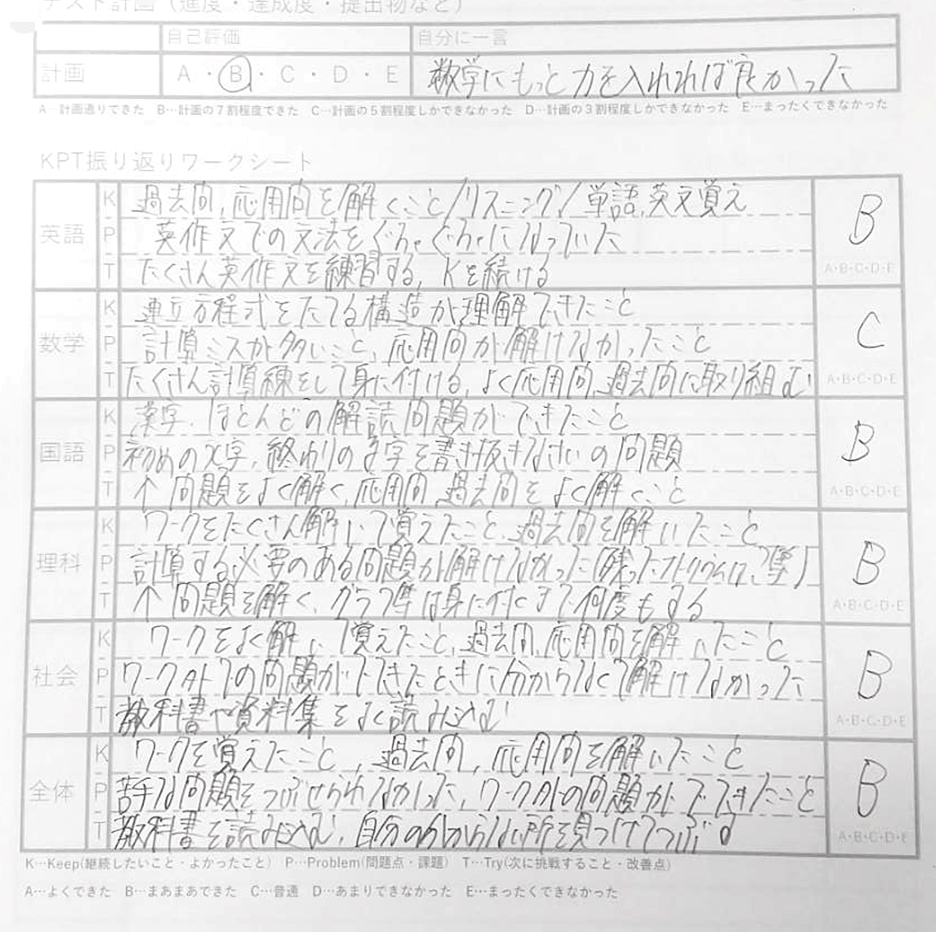 テスト計画（進度・達成度・提出物など）
自己評価 自分に一言
計画 A・B・C・D・E 数学にもっと力を入れれば良かった
A…計画通りできた B…計画の7割程度できた C…計画の5割程度しかできなかった D…計画の3割程度しかできなかった E…まったくできなかった
KPT振り返りワークシート
英語 K 過去問、応用問を解くこと/リスニング/単語、英文覚え B
P 英作文での文法をぐちゃぐちゃになっていた
T たくさん英作文を練習する、Kを続ける A・B・C・D・E
数学 K 連立方程式をたてる構造が理解できたこと C
P 計算ミスが多いこと、応用問が解けなかったこと
T たくさん計算練をして身に付ける、よく応用問、過去問に取り組む A・B・C・D・E
国語 K 漢字、ほとんどの解読問題ができたこと B
P 初めの文字、終わりの文字を書き抜きなさいの問題
T ↑問題をよく解く、応用問、過去問をよく解くこと A・B・C・D・E
理科 K ワークをたくさん解いて覚えたこと、過去問を解いたこと B
P 計算する必要のある問題が解けなかった
T ↑問題を解く、グラフ等は身に付くまで何度もする A・B・C・D・E
社会 K ワークをよく解いて覚えたこと、過去問、応用問を解いたこと B
P ワーク外での問題がでてきたときに分からなくて解けなかった
T 教科書や資料集をよく読み込む A・B・C・D・E
全体 K ワークを覚えたこと 過去問、応用問を解いたこと B
P 苦手な問題をつぶせられなかった、ワーク外の問題がでてきたこと
T 教科書を読み込む、自分の分からない所を見つけてつぶす A・B・C・D・E
K…Keep(継続したいこと・よかったこと) P…Problem(問題点・課題) T…Try(次に挑戦すること・改善点)
A…よくできた B…まあまあできた C…普通 D…あまりできなかった E…まったくできなかった